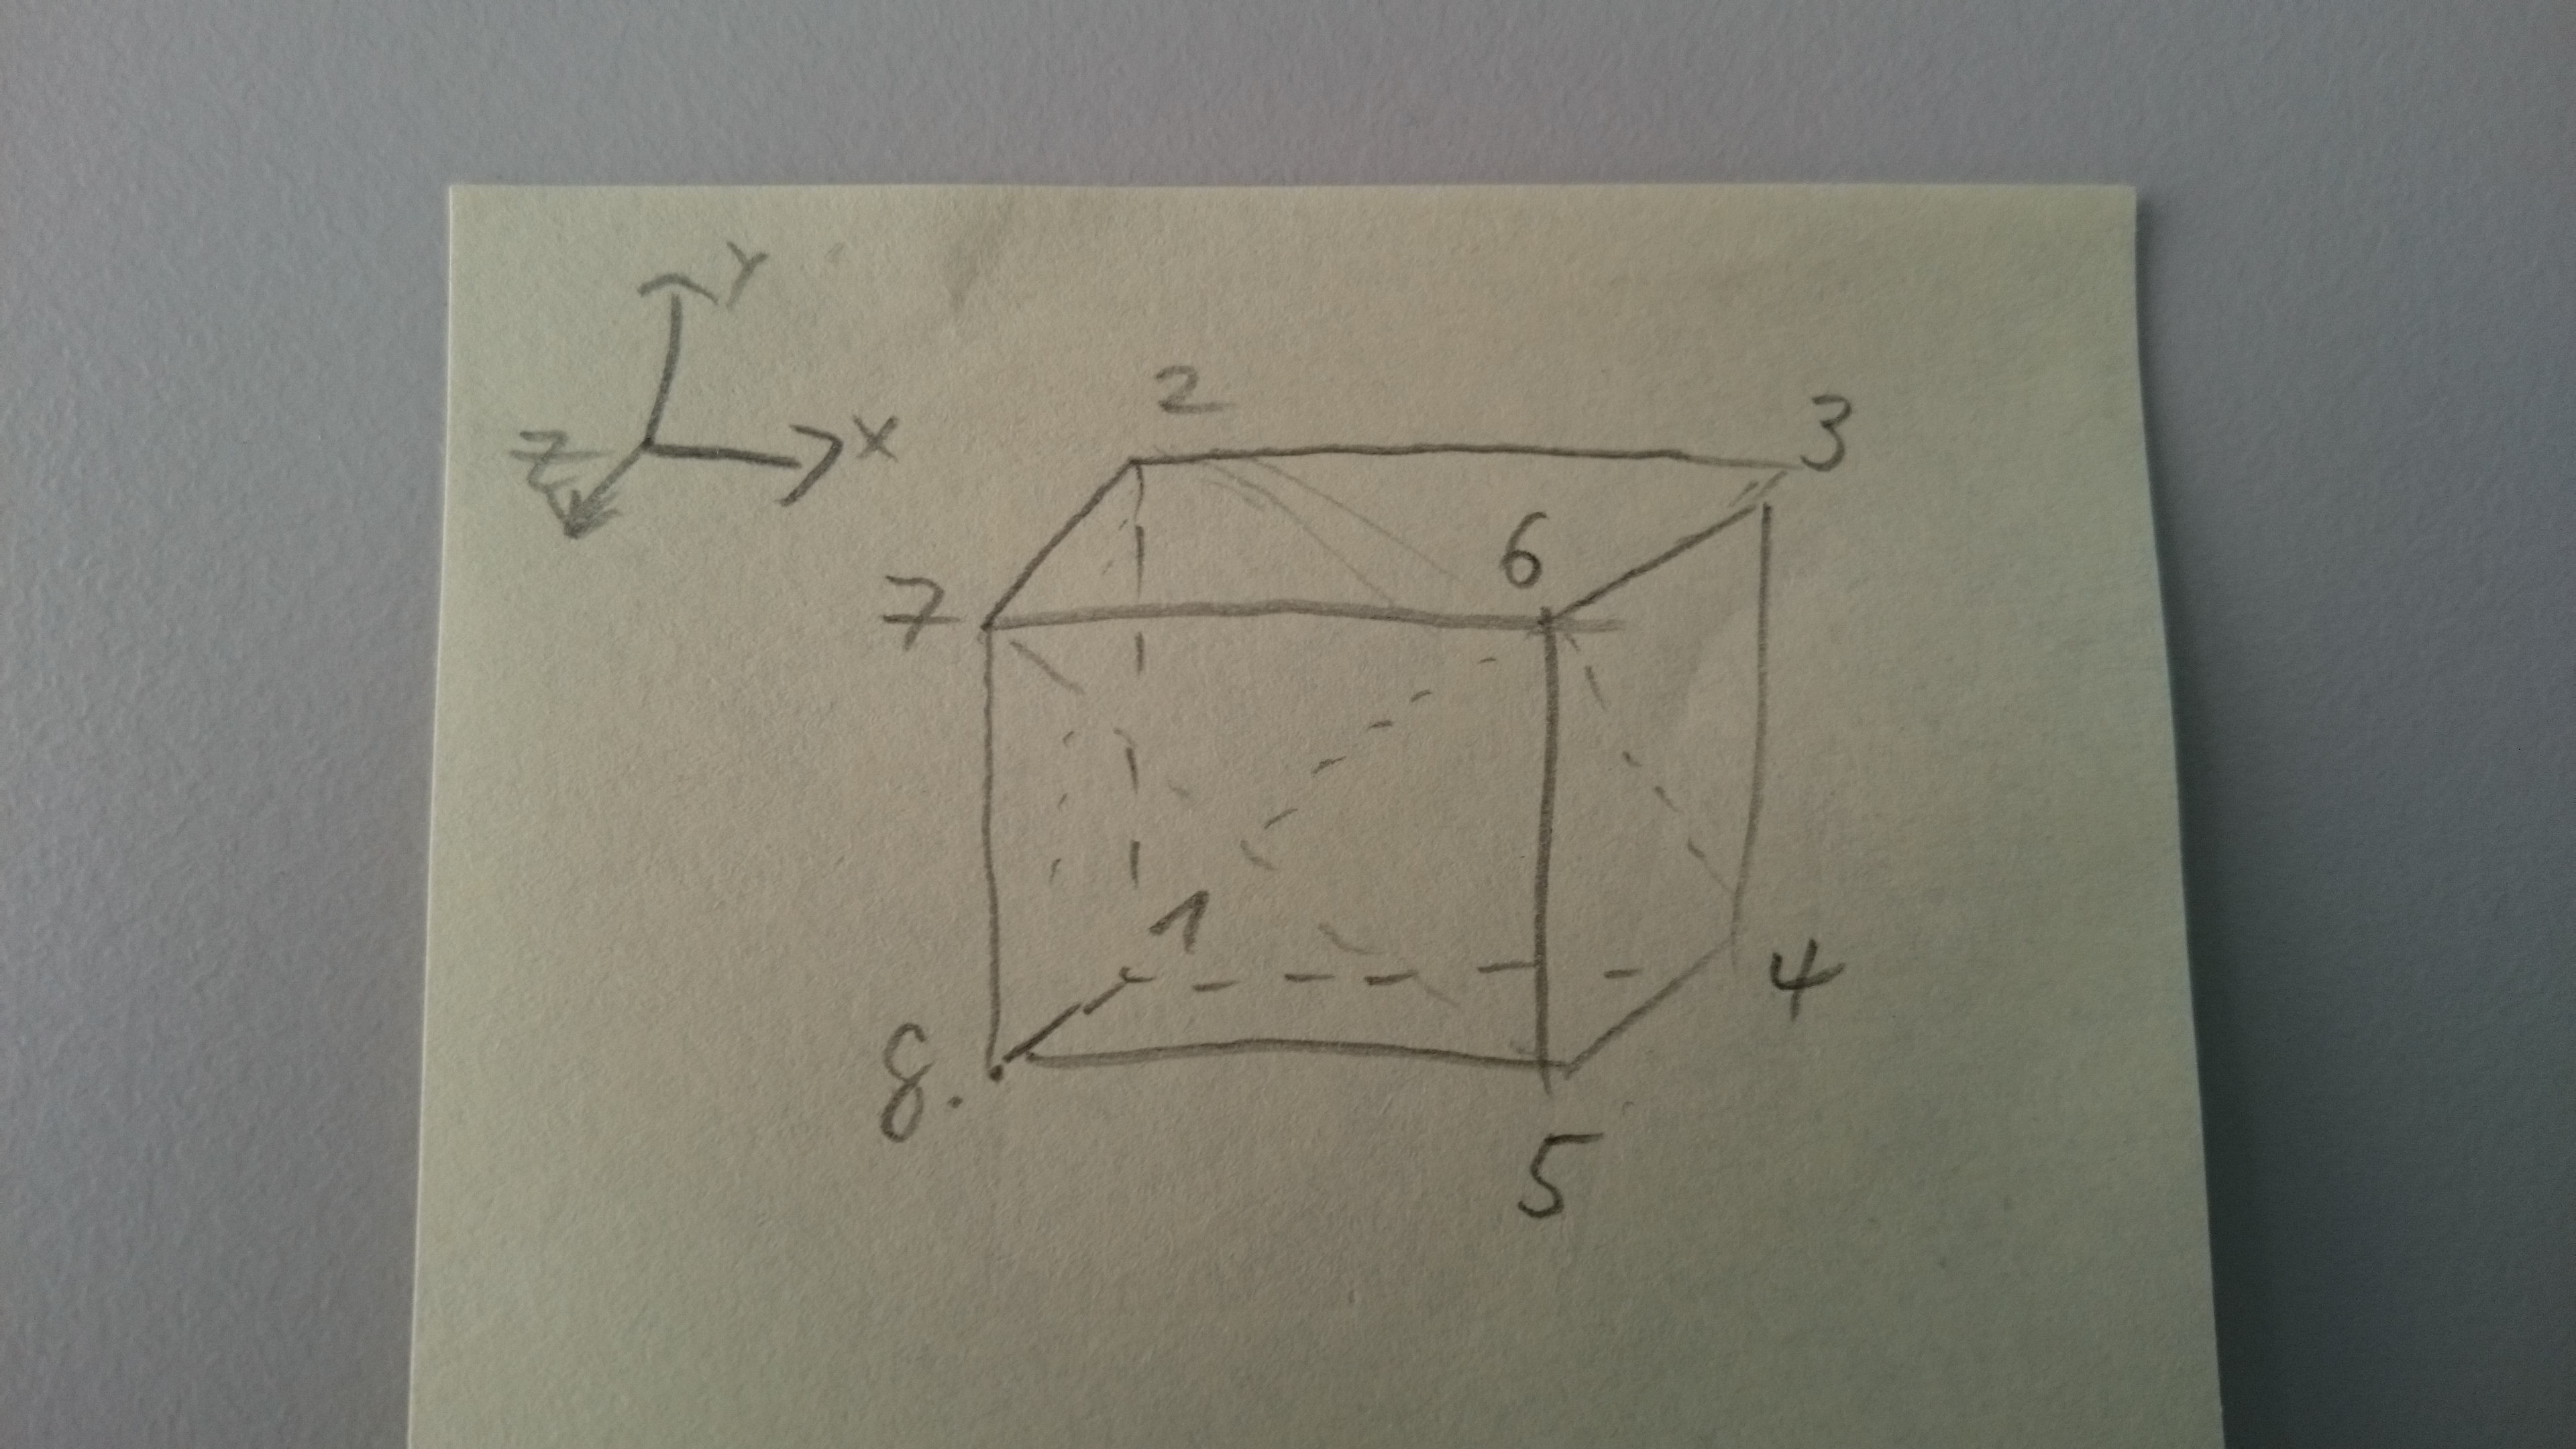 Y
Z X
2
3
6
7
1
4
8.
5